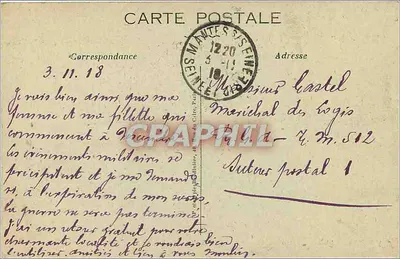 CARTE POSTALE
Correspondance
Adresse
MANTES S/ SEINE
12 20
3 - 11
18
SEINE ET OISE
3. 11. 18
Je vais bien ainsi que ma
femme et ma fillette qui
commencent à
les évènements militaires se
précipitent et je me deman
à l'expiration de mon sursis
la guerre ne sera pas terminée
J'ai un retour gratuit pour votre
charmante localité et je voudrais bien
l'utiliser. Amitiés et bien à vous
Monsieur Castel
Maréchal des Logis
T. M. 512
Secteur postal 1
CPAPHIL